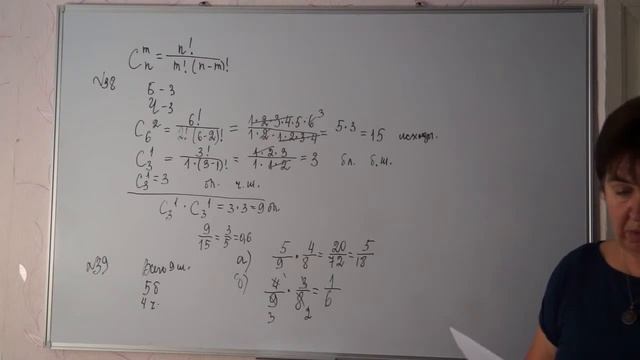 C_n^m = n! / m!(n-m)!
№38
Б - 3
Ч - 3
C_6^2 = 6! / 2!(6-2)! = 1·2·3·4·5·6 3 / 1·2·1·2·3·4 = 5·3 = 15 исходы.
C_3^1 = 3! / 1·(3-1)! = 1·2·3 / 1·1·2 = 3 бл. б.ш.
C_3^1 = 3 бл. ч.ш.
C_3^1 · C_3^1 = 3·3 = 9 бл
9/15 = 3/5 = 0,6
№39 Всего 9 ш.
5 б
4 ч
а) 5/9 · 4/8 = 20/72 = 5/18
б) 4 1 / 9 3 · 3 / 8 2 = 1/6